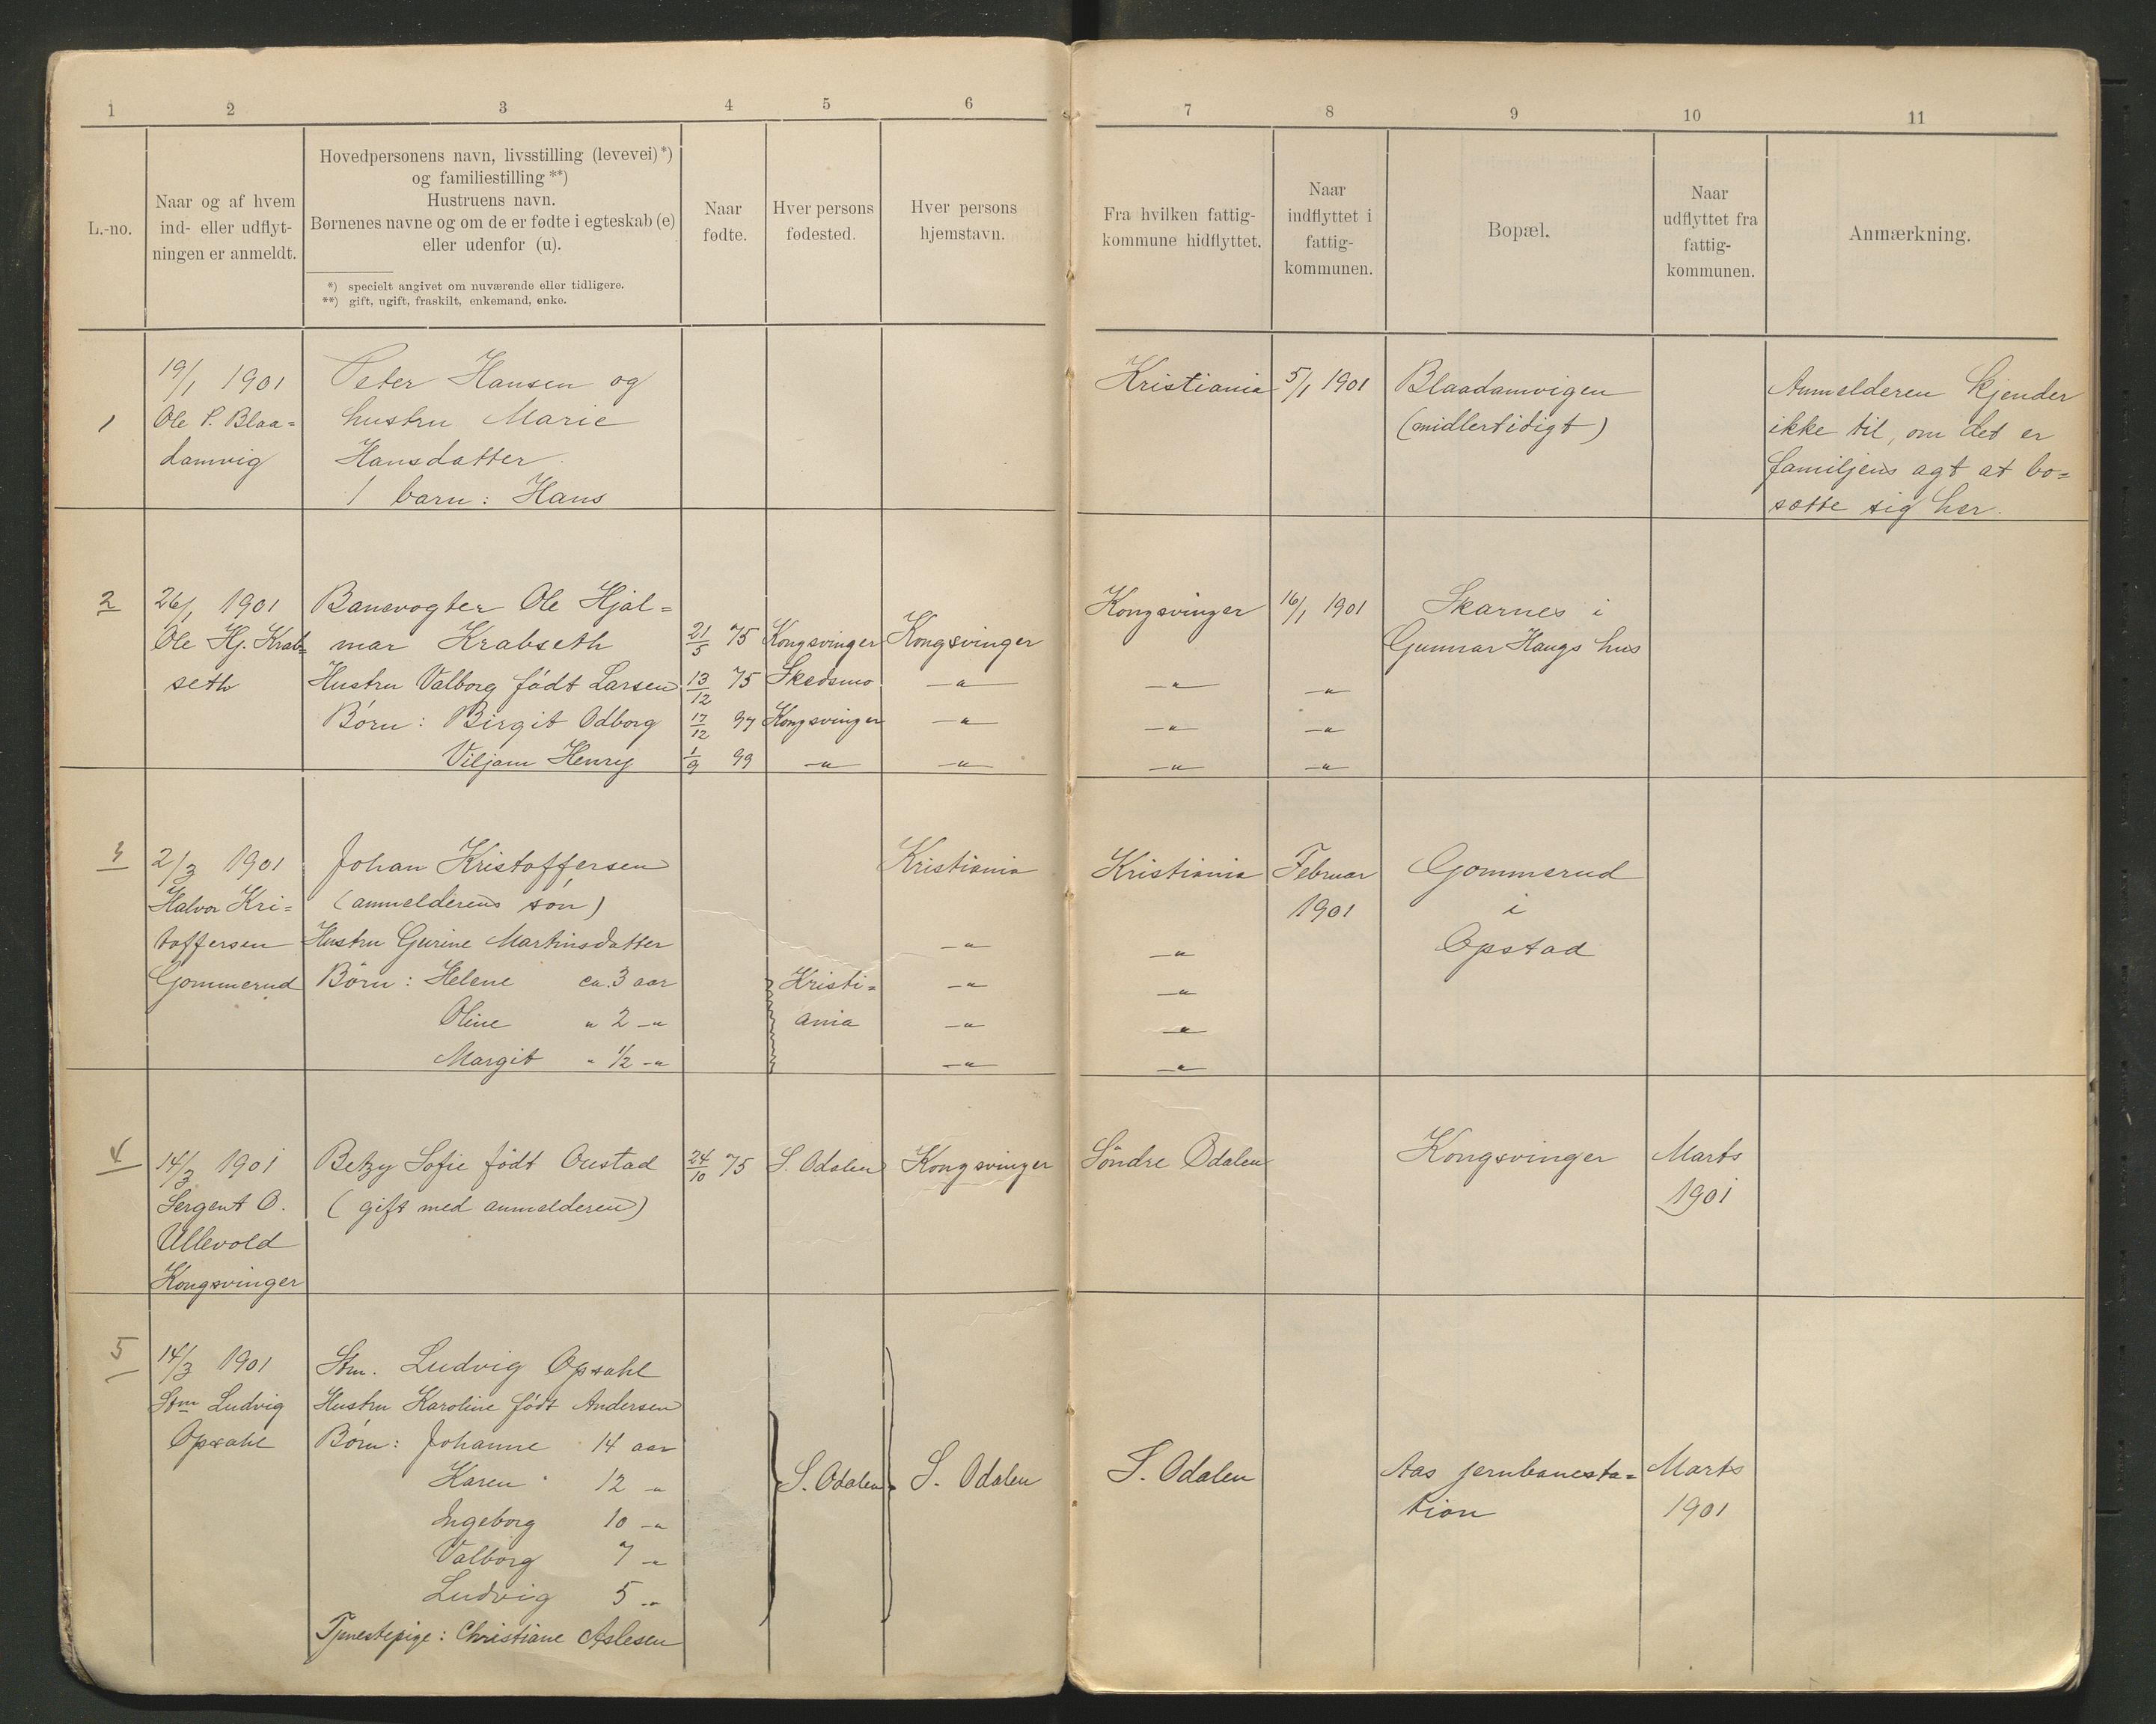 1 2 3 4 5 6 7 8 9 10 11
L.-no.
Naar og af hvem
ind- eller udflyt-
ningen er anmeldt.
Hovedpersonens navn, livsstilling (levevei)*)
og familiestilling**)
Hustruens navn.
Børnenes navne og om de er fødte i egteskab (e)
eller udenfor (u).
*) specielt angivet om nuværende eller tidligere.
**) gift, ugift, fraskilt, enkemand, enke.
Naar
fødte.
Hver persons
fødested.
Hver persons
hjemstavn.
Fra hvilken fattig-
kommune hidflyttet.
Naar
indflyttet i
fattig-
kommunen.
Bopæl.
Naar
udflyttet fra
fattig-
kommunen.
Anmærkning.
1
19/1 1901
Ole P. Blaa=
damvig
Peter Hansen og
hustru Marie
Hansdatter
1 barn: Hans
Kristiania
5/1 1901
Blaadamvigen
(midlertidigt)
Anmelderen kjender
ikke til, om det er
familjens agt at bo=
sætte sig her.
2
26/1 1901
Ole Hj. Krab=
seth
Banevogter Ole Hjal=
mar Krabseth 21/5 75 Kongsvinger Kongsvinger
Hustru Valborg født Larsen 13/12 75 Skedsmo —"—
Børn: Birgit Odborg 17/12 97 Kongsvinger —"—
Viljam Henry 1/9 99 —"— —"—
Kongsvinger 16/1 1901
—"— —"—
—"— —"—
—"— —"—
Skarnes i
Gunnar Haugs hus
3
2/3 1901
Halvor Kri=
toffersen
Gommerud
Johan Kristoffersen
(anmelderens søn)
Hustru Gurine Martinsdatter
Børn: Helene ca. 3 aar
Oline " 2 —"
Margit " 1/2 —"
Kristi=
ania
Kristiania
—"—
—"—
—"—
—"—
Kristiania
—"—
—"—
—"—
—"—
Februar
1901
Gommerud
i
Opstad
4
14/3 1901
Sergent O.
Ullevold
Kongsvinger
Betzy Sofie født Oustad 24/10 75 S. Odalen Kongsvinger
(gift med anmelderen)
Söndre Odalen
Kongsvinger
Marts
1901
5
14/3 1901
Stm Ludvig
Opsahl
Stm. Ludvig Opsahl
Hustru Karoline født Andersen
Børn: Johanne 14 aar
Karen 12 "
Ingeborg 10 —"
Valborg 7 —"
Ludvig 5 —"
Tjenestepige: Christiane Aslesen
S. Odalen
S. Odalen
S. Odalen
Aas jernbanesta=
tion
Marts
1901